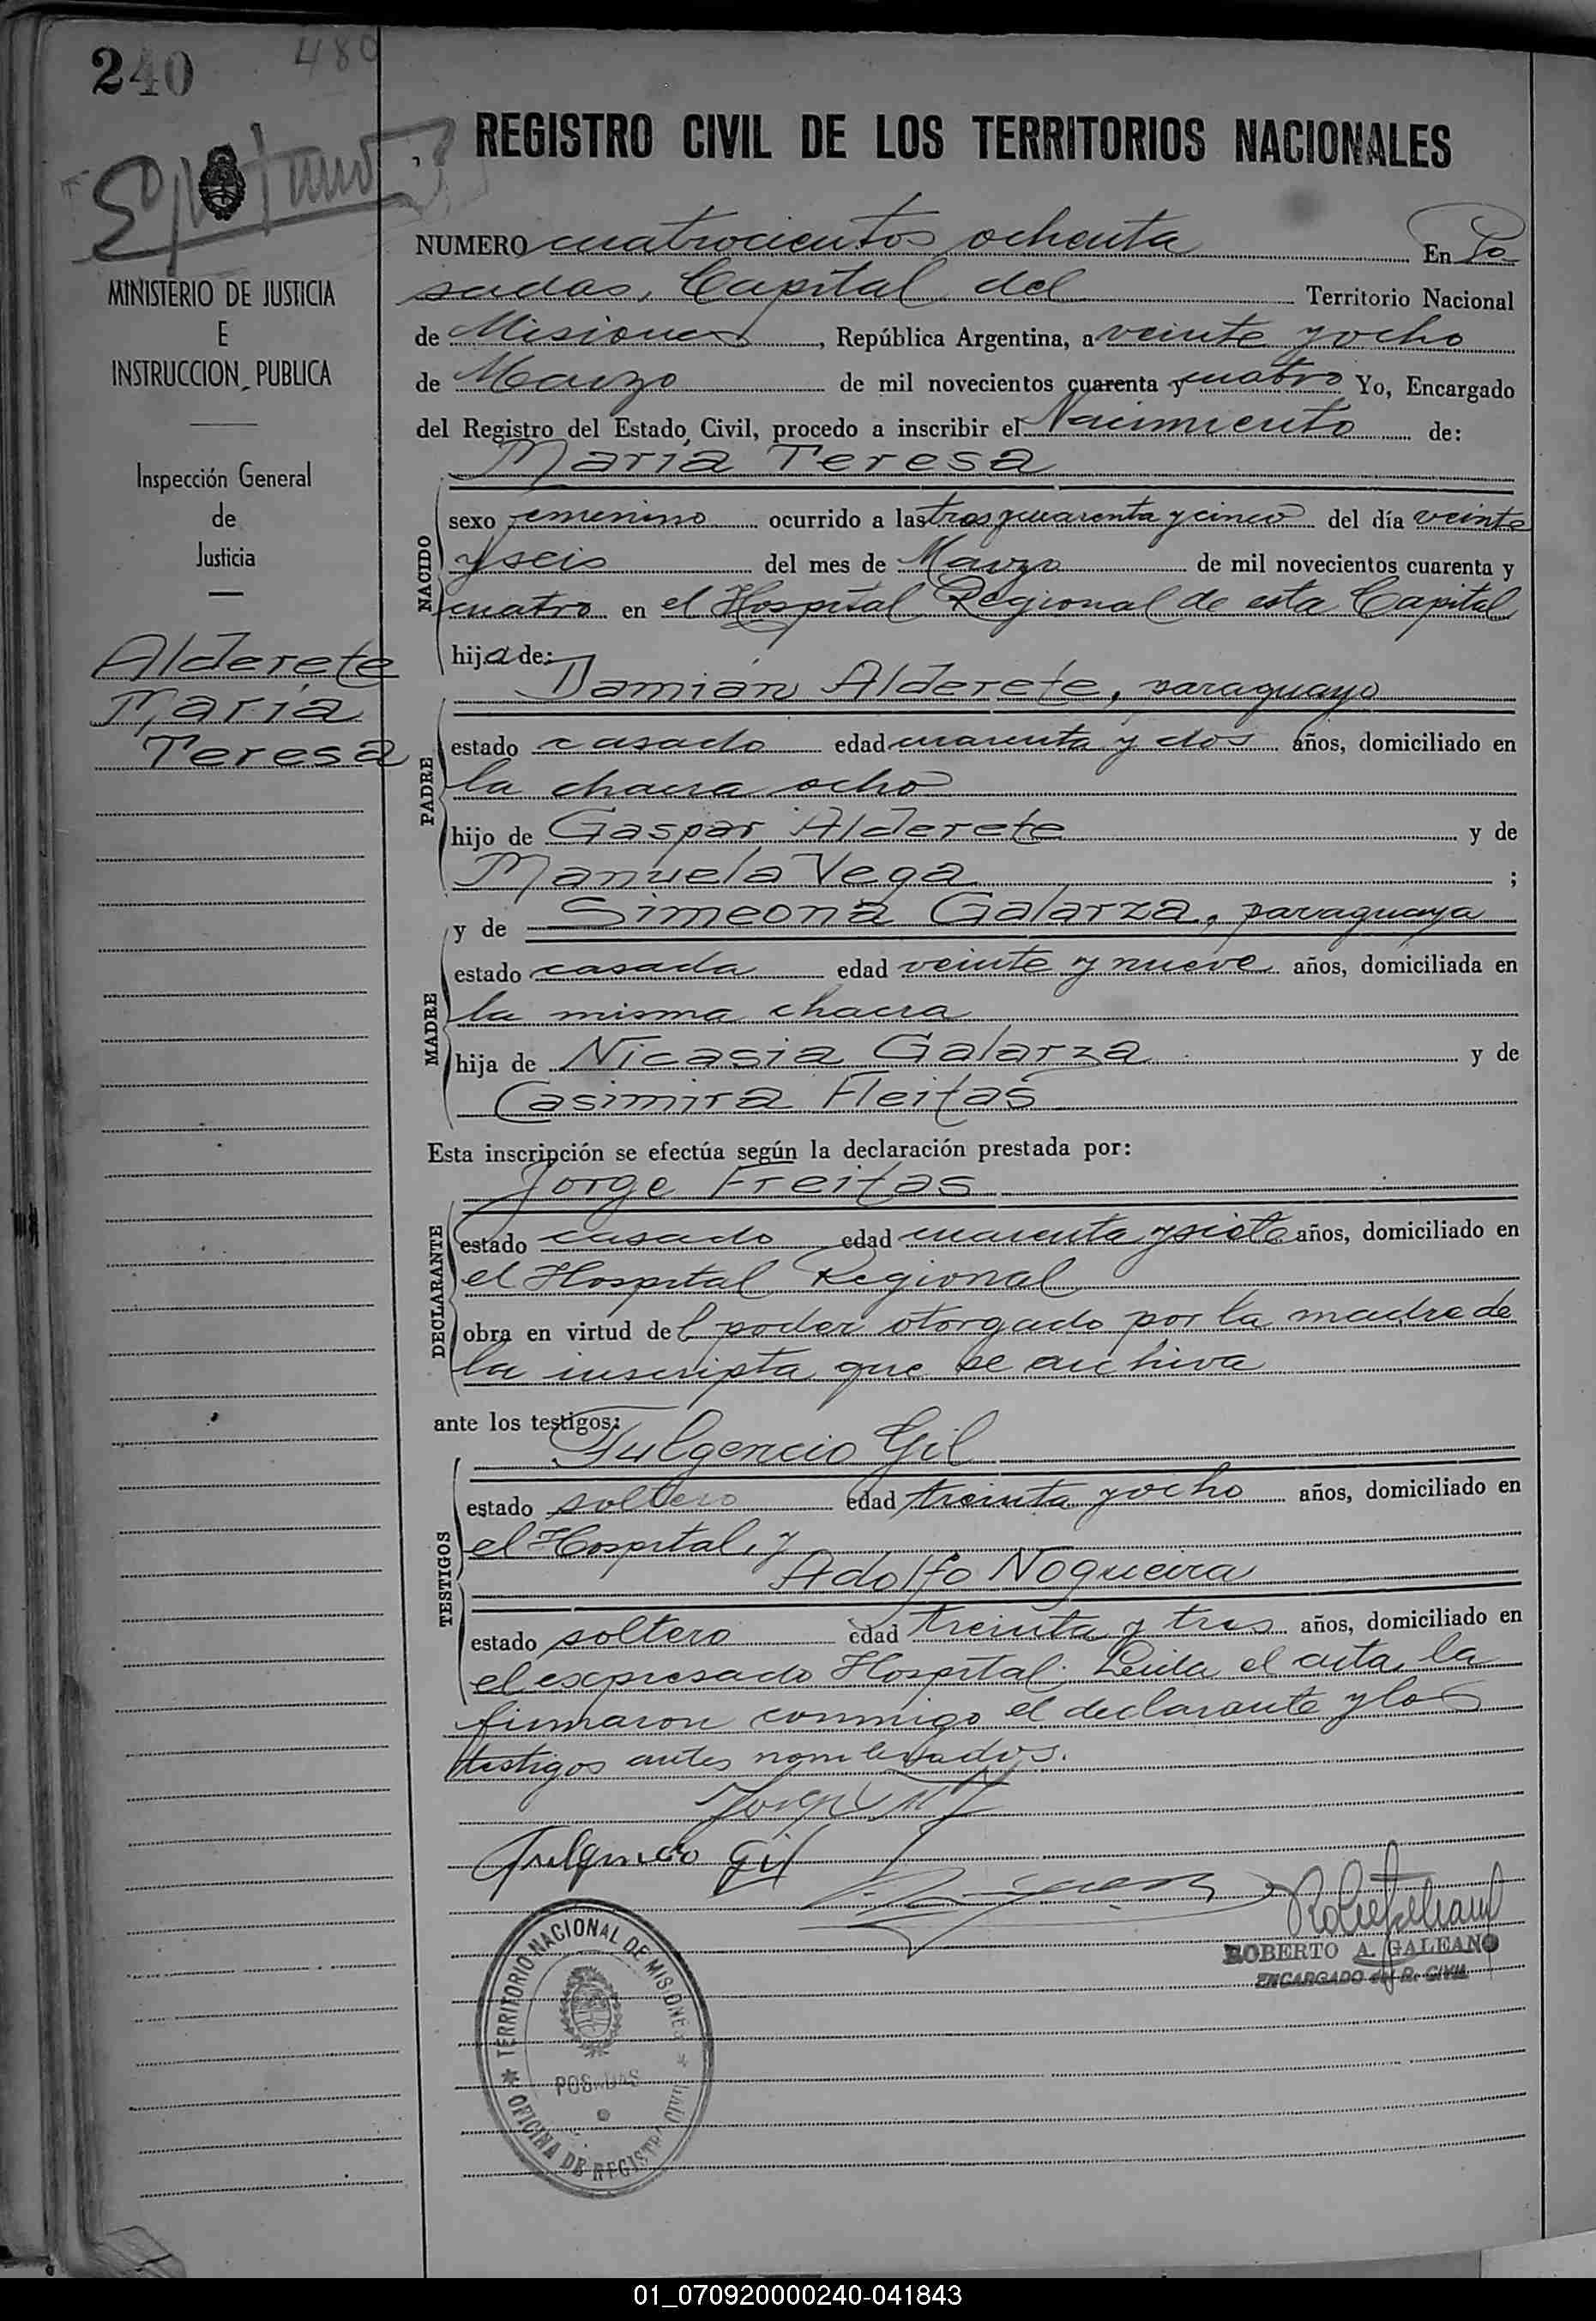 240
480
REGISTRO CIVIL DE LOS TERRITORIOS NACIONALES
MINISTERIO DE JUSTICIA
E
INSTRUCCION PUBLICA
Inspección General
de
Justicia
Alderete
María
Teresa
NUMERO cuatrocientos ochenta En Po
sadas, Capital del Territorio Nacional
de Misiones, República Argentina, a veinte y ocho
de Marzo de mil novecientos cuarenta y cuatro Yo, Encargado
del Registro del Estado Civil, procedo a inscribir el Nacimiento de:
María Teresa
NACIDO
sexo femenino ocurrido a las tres y cuarenta y cinco del día veinte
y seis del mes de Marzo de mil novecientos cuarenta y
cuatro en el Hospital Regional de esta Capital
hija de:
Damián Alderete, paraguayo
PADRE
estado casado edad cuarenta y dos años, domiciliado en
la chacra ocho
hijo de Gaspar Alderete y de
Manuela Vega ;
y de Simeona Galarza, paraguaya
MADRE
estado casada edad veinte y nueve años, domiciliada en
la misma chacra
hija de Nicasia Galarza y de
Casimira Fleitas
Esta inscripción se efectúa según la declaración prestada por:
Jorge Freitas
DECLARANTE
estado casado edad cuarenta y siete años, domiciliado en
el Hospital Regional
obra en virtud del poder otorgado por la madre de
la inscripta que se archiva
ante los testigos:
Fulgencio Gil
TESTIGOS
estado soltero edad treinta y ocho años, domiciliado en
el Hospital, y
Adolfo Nogueira
estado soltero edad treinta y tres años, domiciliado en
el expresado Hospital. Leida el acta, la
firmaron conmigo el declarante y los
testigos antes nombrados.
Fulgencio Gil
ROBERTO A. GALEANO
ENCARGADO del R. CIVIL
TERRITORIO NACIONAL DE MISIONES
POSADAS
OFICINA DE REGISTRO
01_070920000240-041843